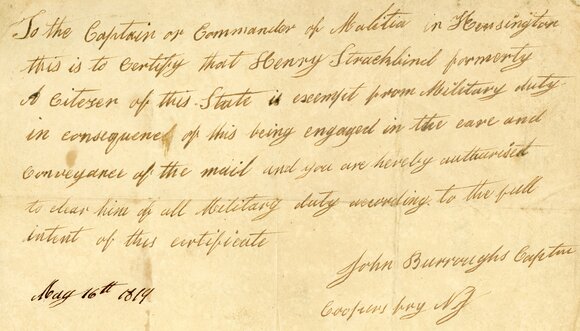 To the Captain or Commander of Malitia in Kensington
this is to Certify that Henry Strachbind formerly
A Citezer of this State is exempt from Military duty
in consequence of this being engaged in the care and
Conveyance of the mail and you are hereby authorised
to clear him of all Military duty according to the full
intent of this certificate
John Burroughs Captn
May 16th 1814
Coopers fry NJ